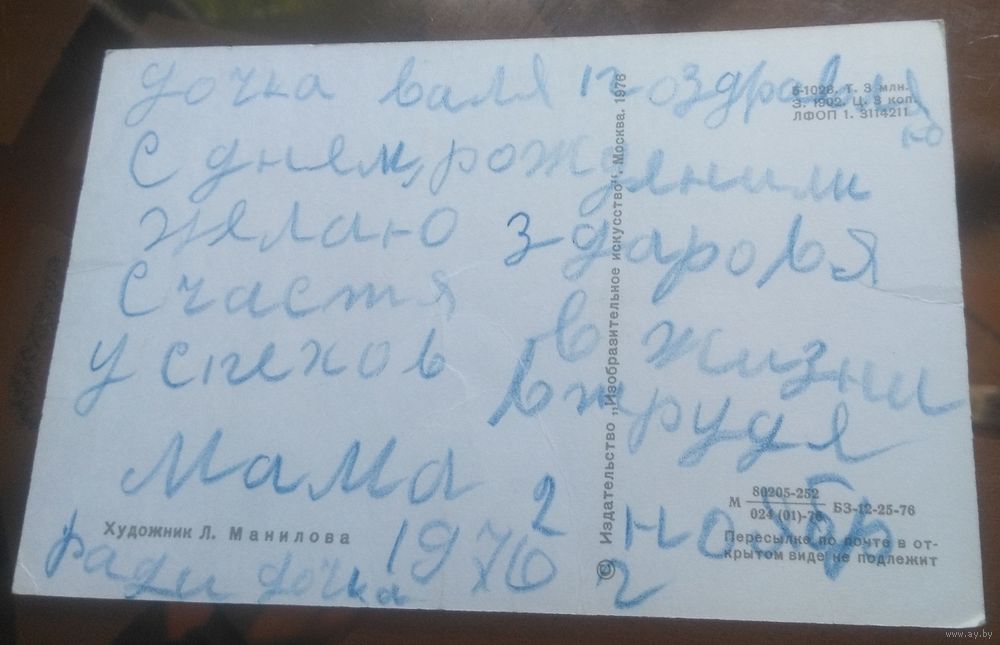 дочка валя поздравля
ю
с днем, рождянили
желаю здаровя
счастя
успехов в жизни
в трудя
Мама
2 ноябр
1976 г
ради дочка
Б-1028. Т. 3 млн.
З. 1902. Ц. 3 коп.
ЛФОП 1. 3114211
© Издательство „Изобразительное искусство". Москва. 1976
Художник Л. Манилова
М 80205-252
024 (01)-76 БЗ-12-25-76
Пересылке по почте в от-
крытом виде не подлежит
www.ay.by